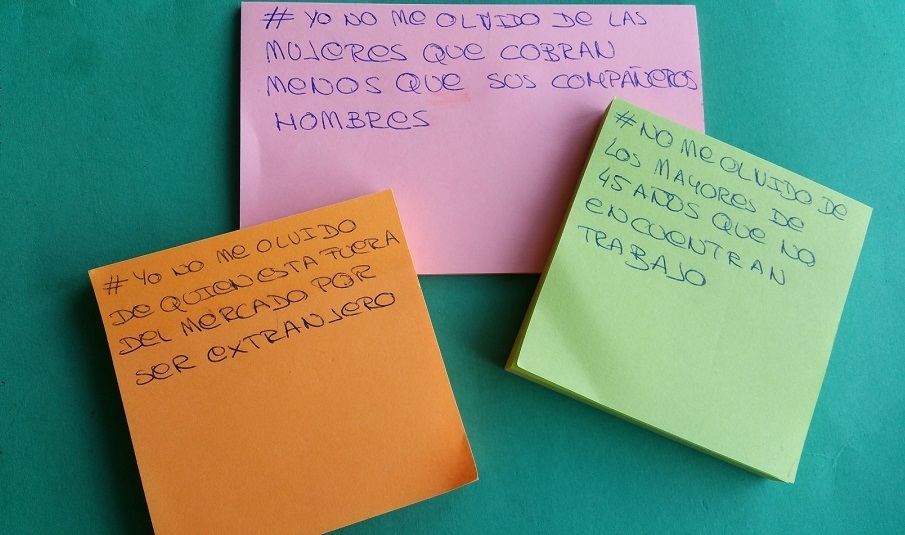 # YO NO ME OLVIDO DE LAS
MUJERES QUE COBRAN
MENOS QUE SUS COMPAÑEROS
HOMBRES
#NO ME OLVIDO DE
LOS MAYORES DE
45 AÑOS QUE NO
ENCUENTRAN
TRABAJO
# YO NO ME OLVIDO
DE QUIEN ESTA FUERA
DEL MERCADO POR
SER EXTRANJERO